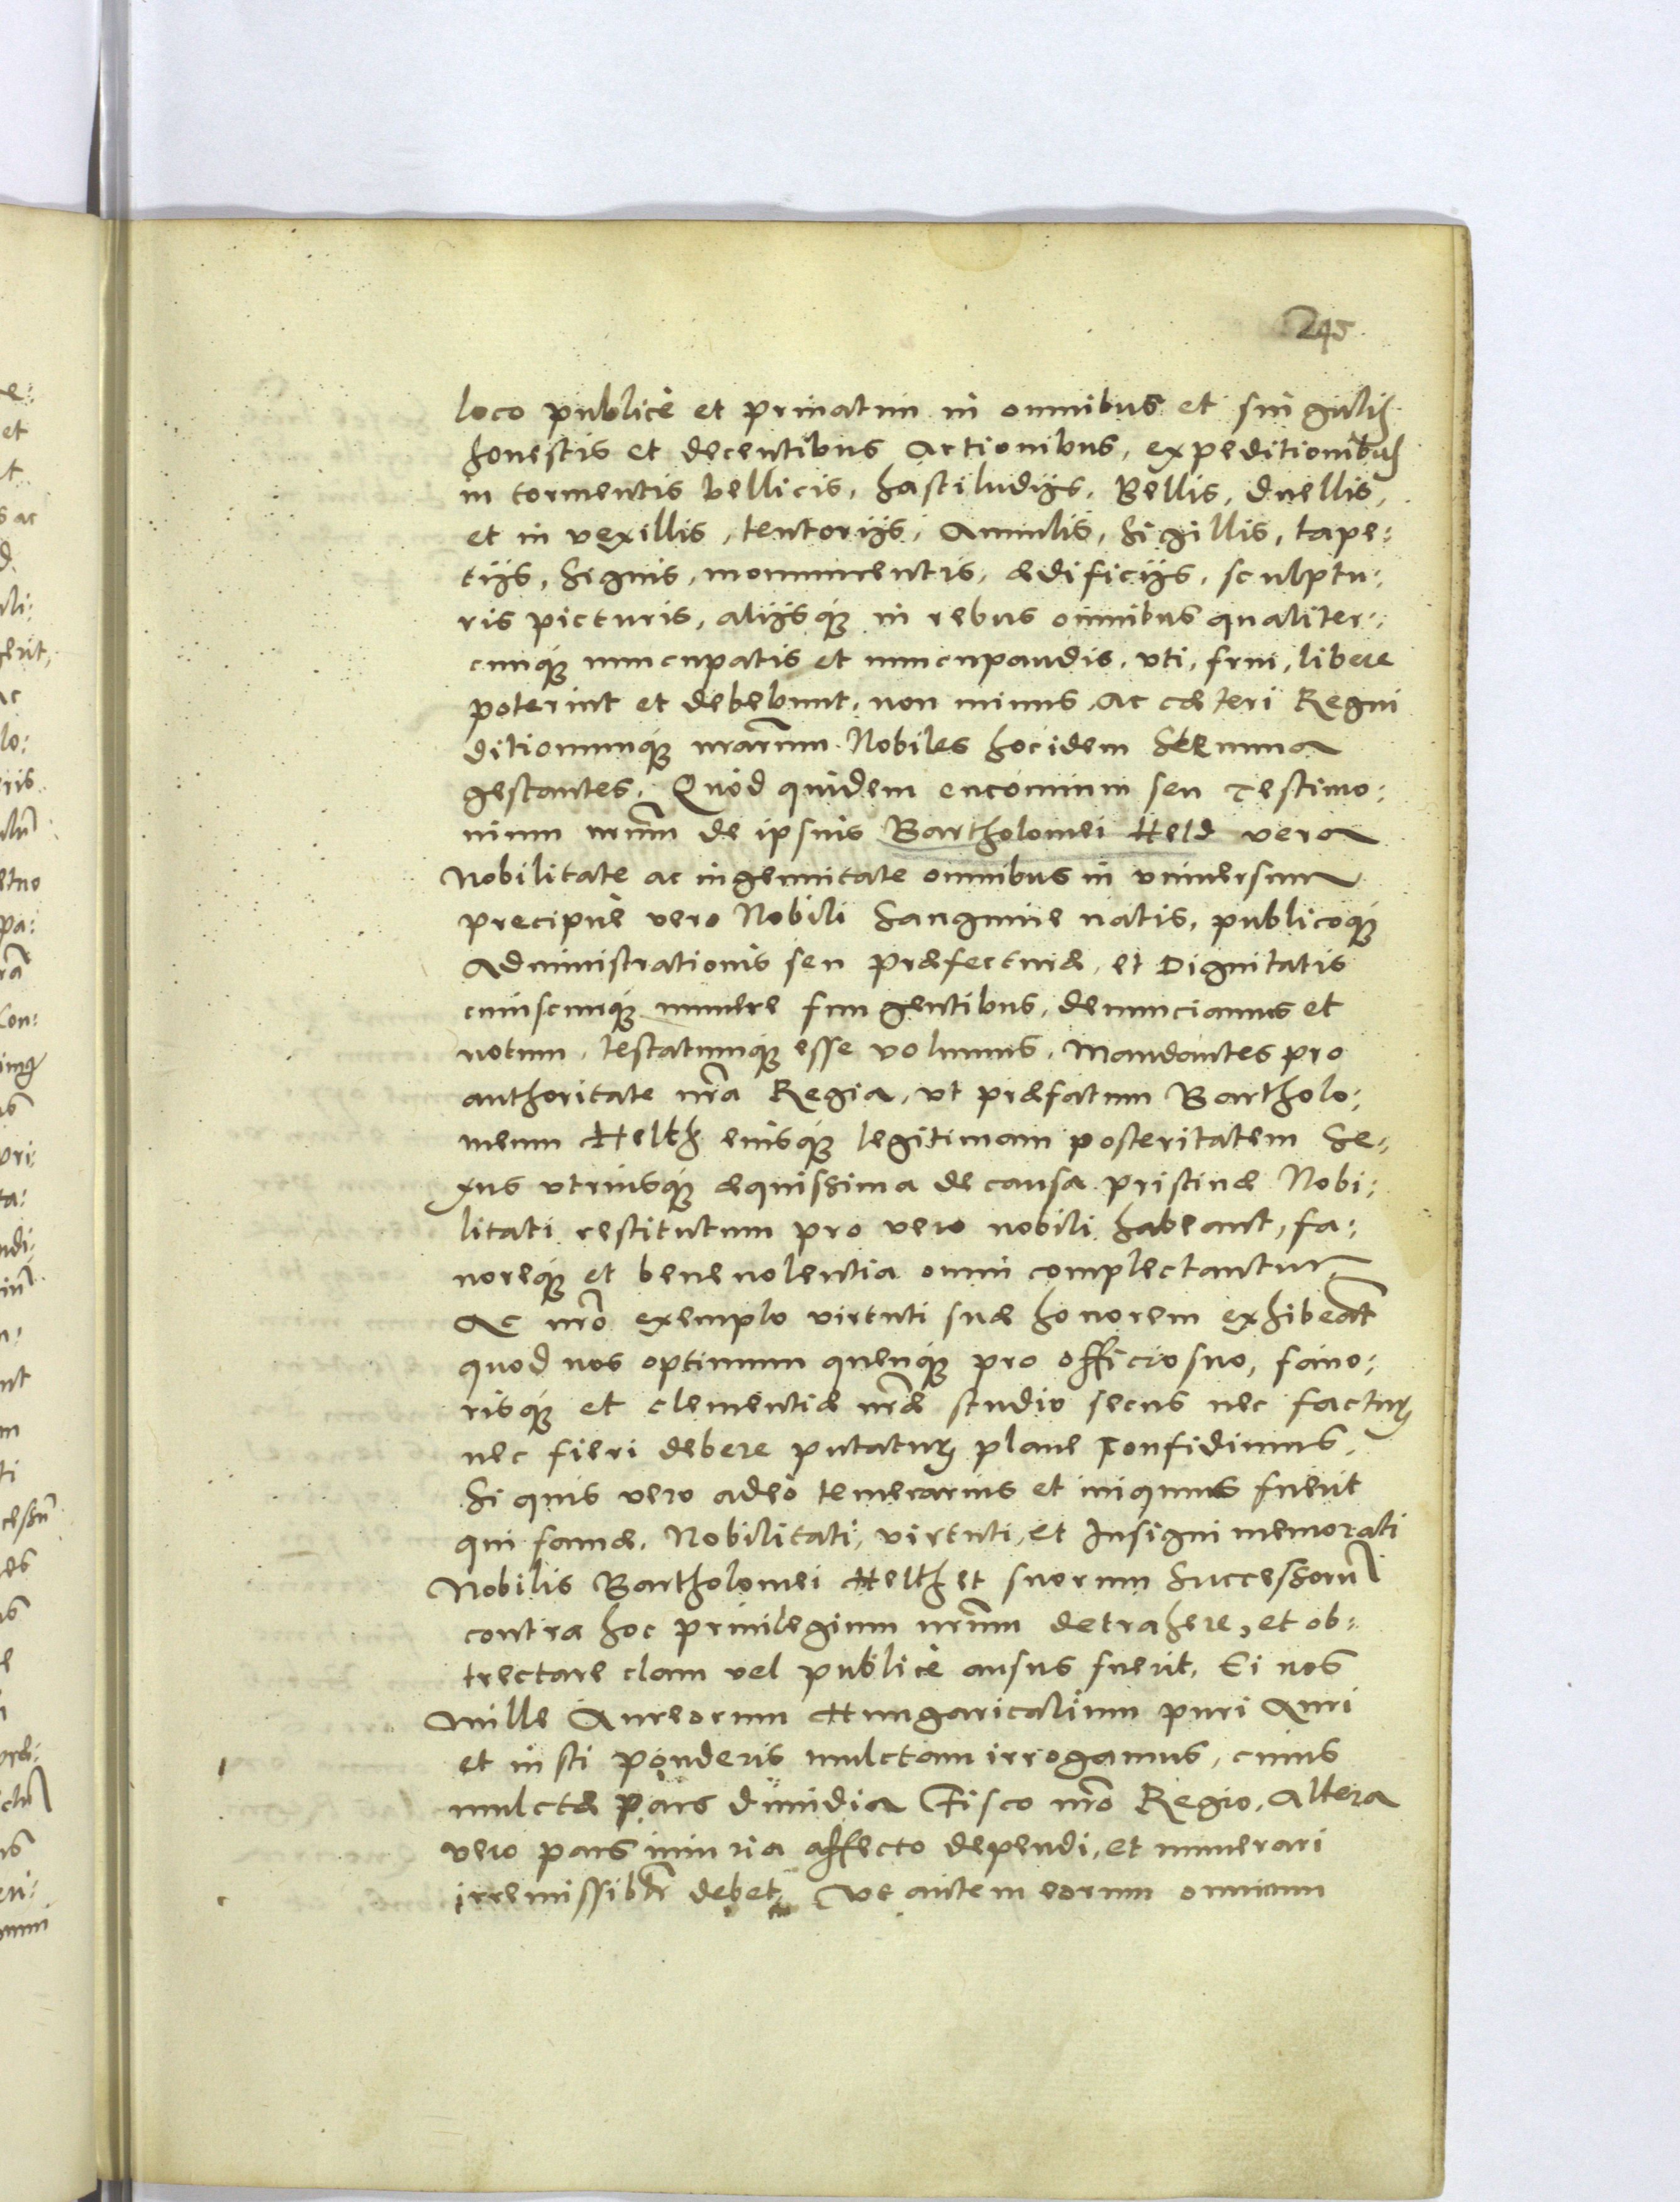 245
loco publicè et priuatim in omnibus et singulis
honestis et decentibus Actionibus, expeditionibus
in tormentis bellicis, hastiludijs, Bellis, duellis,
et in vexillis, tentorijs, Annulis, Sigillis, tape:
tijs, Signis, monumentis, ædificijs, sculptu:
ris picturis, alijsq́ue in rebus omnibus qualiter:
cunq́ue nuncupatis et nuncupandis, vti, frui, libere
poterint et debebunt, non minus, ac cæteri Regni
ditionumq́ue nrarum Nobiles hoc idem Stemma
gestantes. Quòd quidem encomium seu Testimo:
nium nrum de ipsius Bartholomei Held vera
Nobilitate ac ingenuitate omnibus in vniuersum
precipuè vero Nobili Sanguine natis, publicoq́ue
Administrationis seu præfecturæ, et Dignitatis
cuiuscunq́ue munere fungentibus, denunciamus et
notum, testatumq́ue esse volumus. Mandantes pro
authoritate nra Regia, vt præfatum Bartholo:
meum Helth eiusq́ue legitimam posteritatem Se:
xus vtriusq́ue æquissima de causa pristinæ Nobi:
litati restitutum pro vero nobili habeant, fa:
uoreq́ue et beneuolentia omni complectantur
Ac nro exemplo virtuti suæ honorem exhibeant
quod nos optimum quenq́ue pro officio suo, fauo:
risq́ue et clementiæ nræ studio secus nec facturum
nec fieri debere putaturum plane confidimus.
Si quis vero adeò temerarius et iniquus fuerit
qui famæ, Nobilitati, virtuti, et Insigni memorati
Nobilis Bartholomei Helth et suorum Successorum
contra hoc priuilegium nrum detrahere, et ob:
trectare clam vel publicè ausus fuerit, Ei nos
Mille Aureorum Hungaricalium puri Auri
et iusti ponderis mulctam irrogamus, cuius
mulctæ pars dimidia Fisco nro Regio, Altera
vero pars iniuria affecto dependi, et numerari
irremissibilr debet, Vt autem eorum omnium